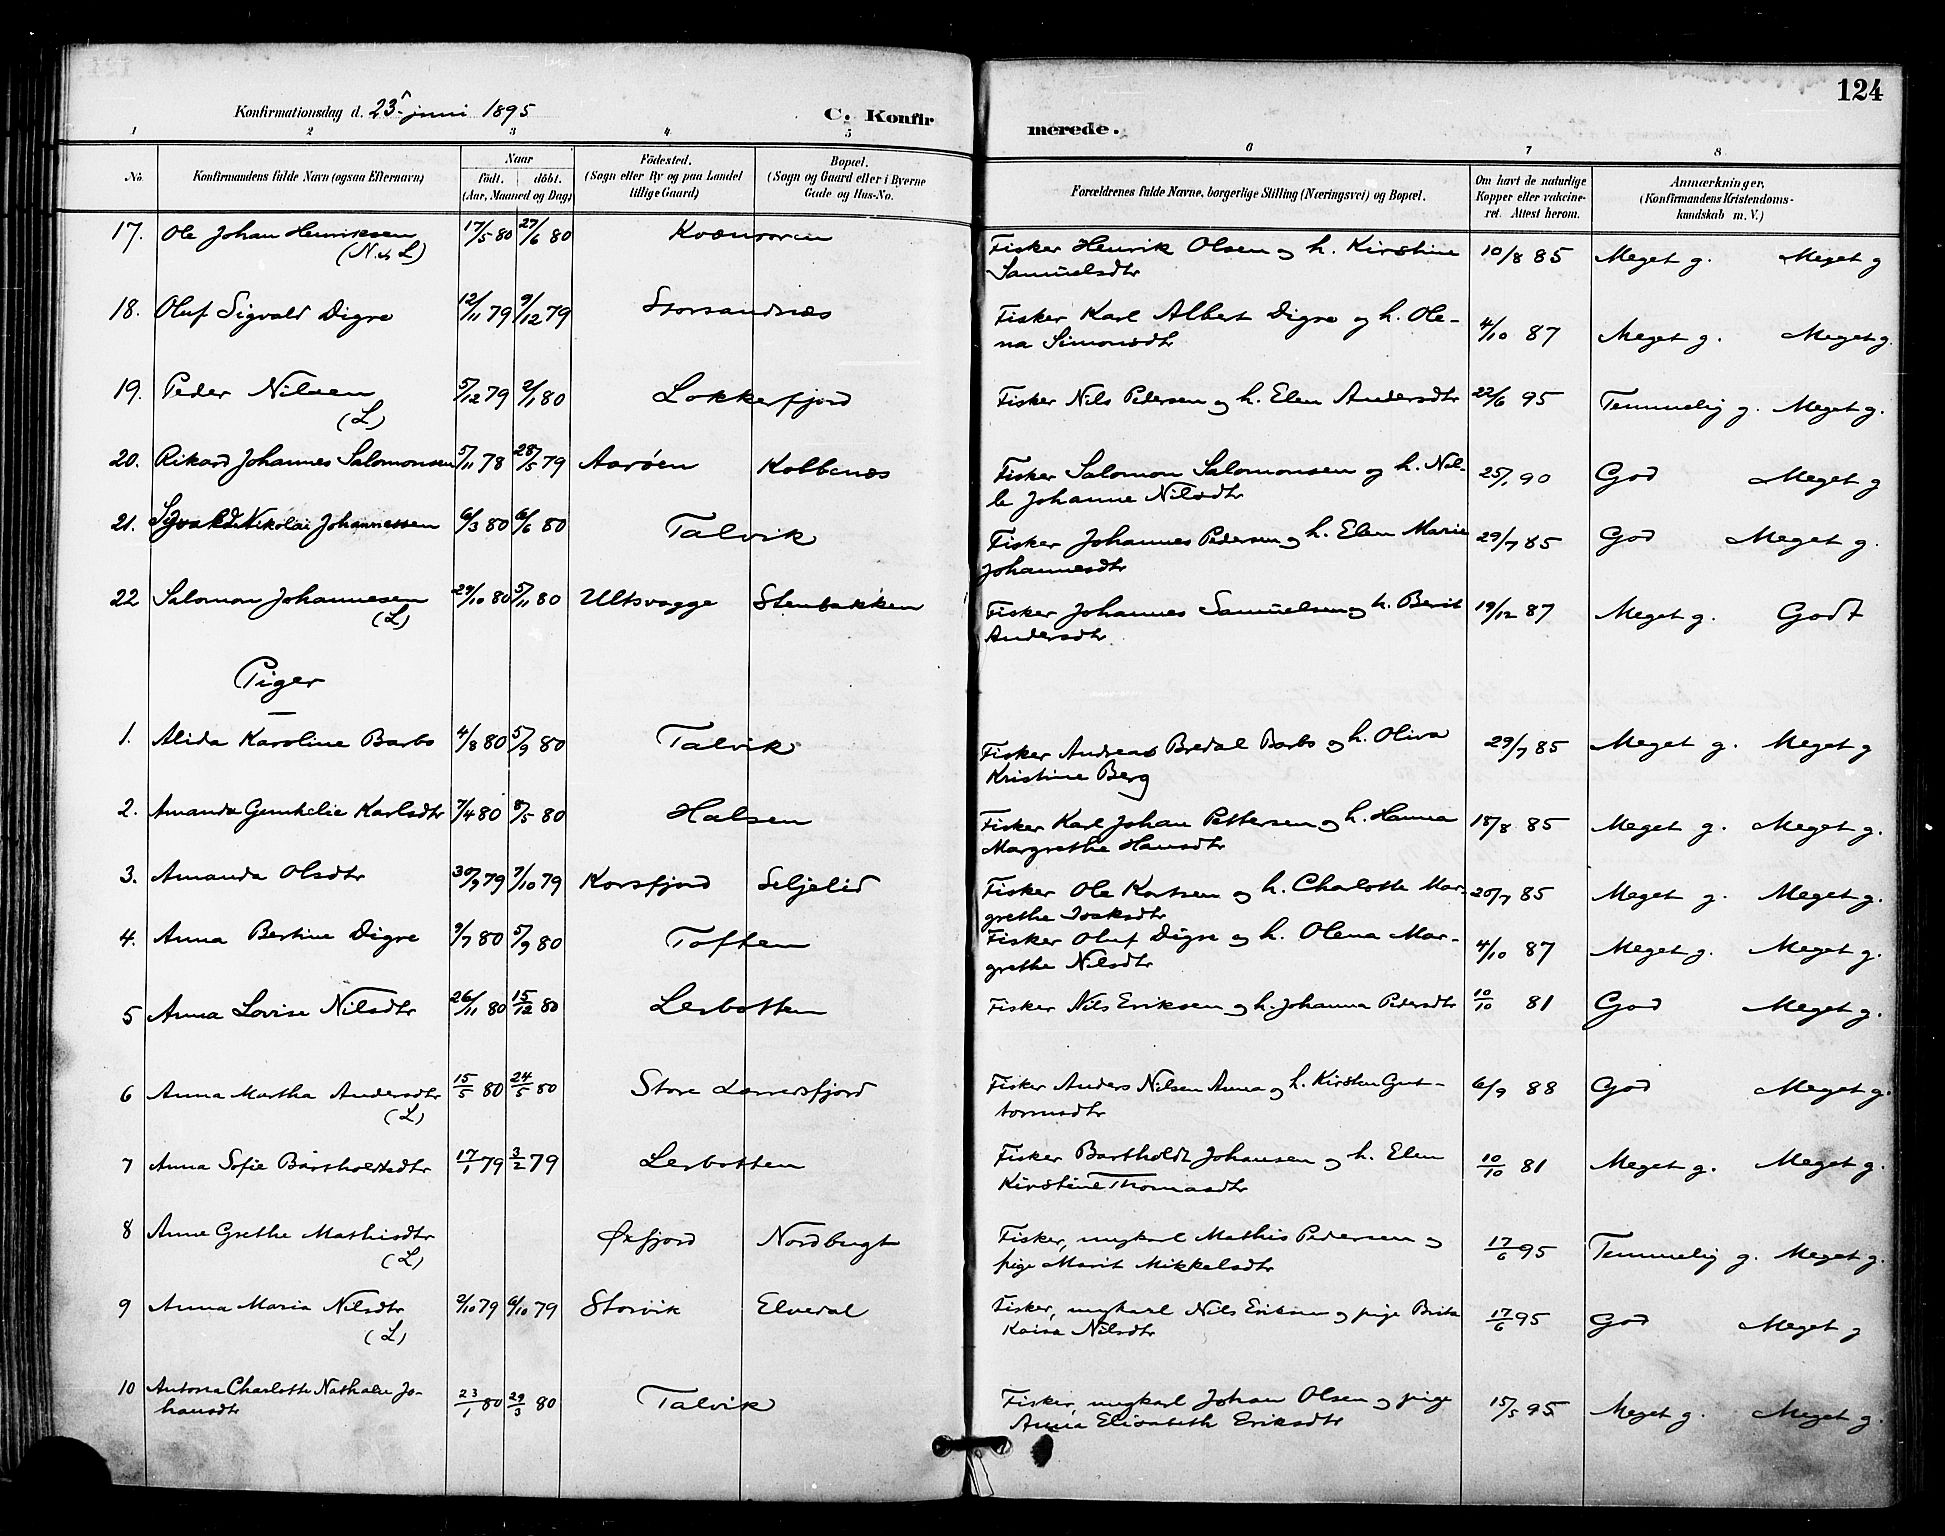 124
Konfirmationsdag d. 23. juni 1895
C. Konfirmerede.
1 2 3 4 5 6 7 8
No. Konfirmandens fulde Navn (ogsaa Efternavn) Naar født. døbt. (Aar, Maaned og Dag) Födested. (Sogn eller By og paa Landet tillige Gaard) Bopæl. (Sogn og Gaard eller i Byerne Gade og Hus-No. Forældrenes fulde Navne, borgerlige Stilling (Næringsvei) og Bopæl. Om havt de naturlige Kopper eller vakcineret. Attest herom. Anmærkninger, (Konfirmandens Kristendomskundskab m. V.)
17. Ole Johan Henriksen 17/5 80 27/6 80 Fisker Henrik Olsen og h. Kirstine 10/8 85 Meget g. Meget g
(N. & L)
Samuelsdtr
18. Oluf Sigvald Digre 12/11 79 9/12 79 Storsandnæs Fisker Karl Albert Digre og h. Ole- 4/10 87 Meget g. Meget g.
na Simonsdtr
19. Peder Nilsen 5/12 79 2/1 80 Lokkerfjord Fisker Nils Pedersen og h. Elen Andersdtr 22/6 95 Temmelig g. Meget g.
(L)
20. Rikard Johannes Salomonsen 5/11 78 28/5 79 Aarøen Kobbenæs Fisker Salomon Salomonsen og h. Nil- 90 God Meget g
le Johanne Nilsdtr
21. Nikolai Johannessen 6/3 80 6/6 80 Talvik Fisker Johannes Pedersen og h. Elen Marie 29/7 85 God Meget g.
Johannesdtr
22 Salomon Johannesen 29/10 80 5/11 80 Ultsvagge Stenbakken Fisker Johannes Samuelsen og h. Berit 19/12 87 Meget g. Godt
(L)
Andersdtr.
Piger
1. Alida Karoline Barbo 4/8 80 5/9 80 Talvik Fisker Andreas Bredal Barbo og h. Oliva 29/7 85 Meget g. Meget g
Kristine Berg
2. Amanda Karlsdtr 7/4 80 8/5 80 Halsen Fisker Karl Johan Pettersen og h. Hanna 18/8 85 Meget g. Meget g.
Margrethe Hansdtr
3. Amanda Olsdtr 30/9 79 7/10 79 Korsfjord Seljelid Fisker Ole Kortsen og h. Charlotte Mar- 20/7 85 Meget g. Meget g.
grethe Isaksdtr
4. Anna Bertine Digre 9/7 80 5/9 80 Toften Fisker Oluf Digre og h. Olena Mar- 4/10 87 Meget g. Meget g.
grethe Nilsdtr
5 Anna Lovise Nilsdtr 26/11 80 15/12 80 Lerbotten Fisker Nils Eriksen og h. Johanna Pedersdtr 10/10 81 God Meget g.
6 Anna Martha Andersdtr 15/5 80 24/5 80 Store Lerresfjord Fisker Anders Nilsen Anna og h. Kirsten Gut- 6/9 88 God Meget g.
(L)
tormsdtr
7 Anna Sofie Bartholdsdtr 17/1 79 3/2 79 Lerbotten Fisker Bartholdt Johansen og h. Elen 10/10 81 Meget g. Meget g.
Kirstine Thomasdtr
8 Anne Grethe Mathisdtr Øxfjord Nordbugt Fisker, ungkarl Mathis Pedersen og 17/6 95 Temmelig g. Meget g.
(L)
pige Marit Mikkelsdtr
9 Anna Maria Nilsdtr 2/10 79 6/10 79 Storvik Elvedal Fisker, ungkarl Nils Eriksen og pige Brita 17/6 95 God Meget g
(L)
Kaisa Nilsdtr
10 Antona Charlotte Nathalie Jo- 23/1 80 29/3 80 Talvik Fisker, ungkarl Johan Olsen og pige 15/5 95 Meget g. Meget g.
hansdtr
Anna Elisabeth Eriksdtr